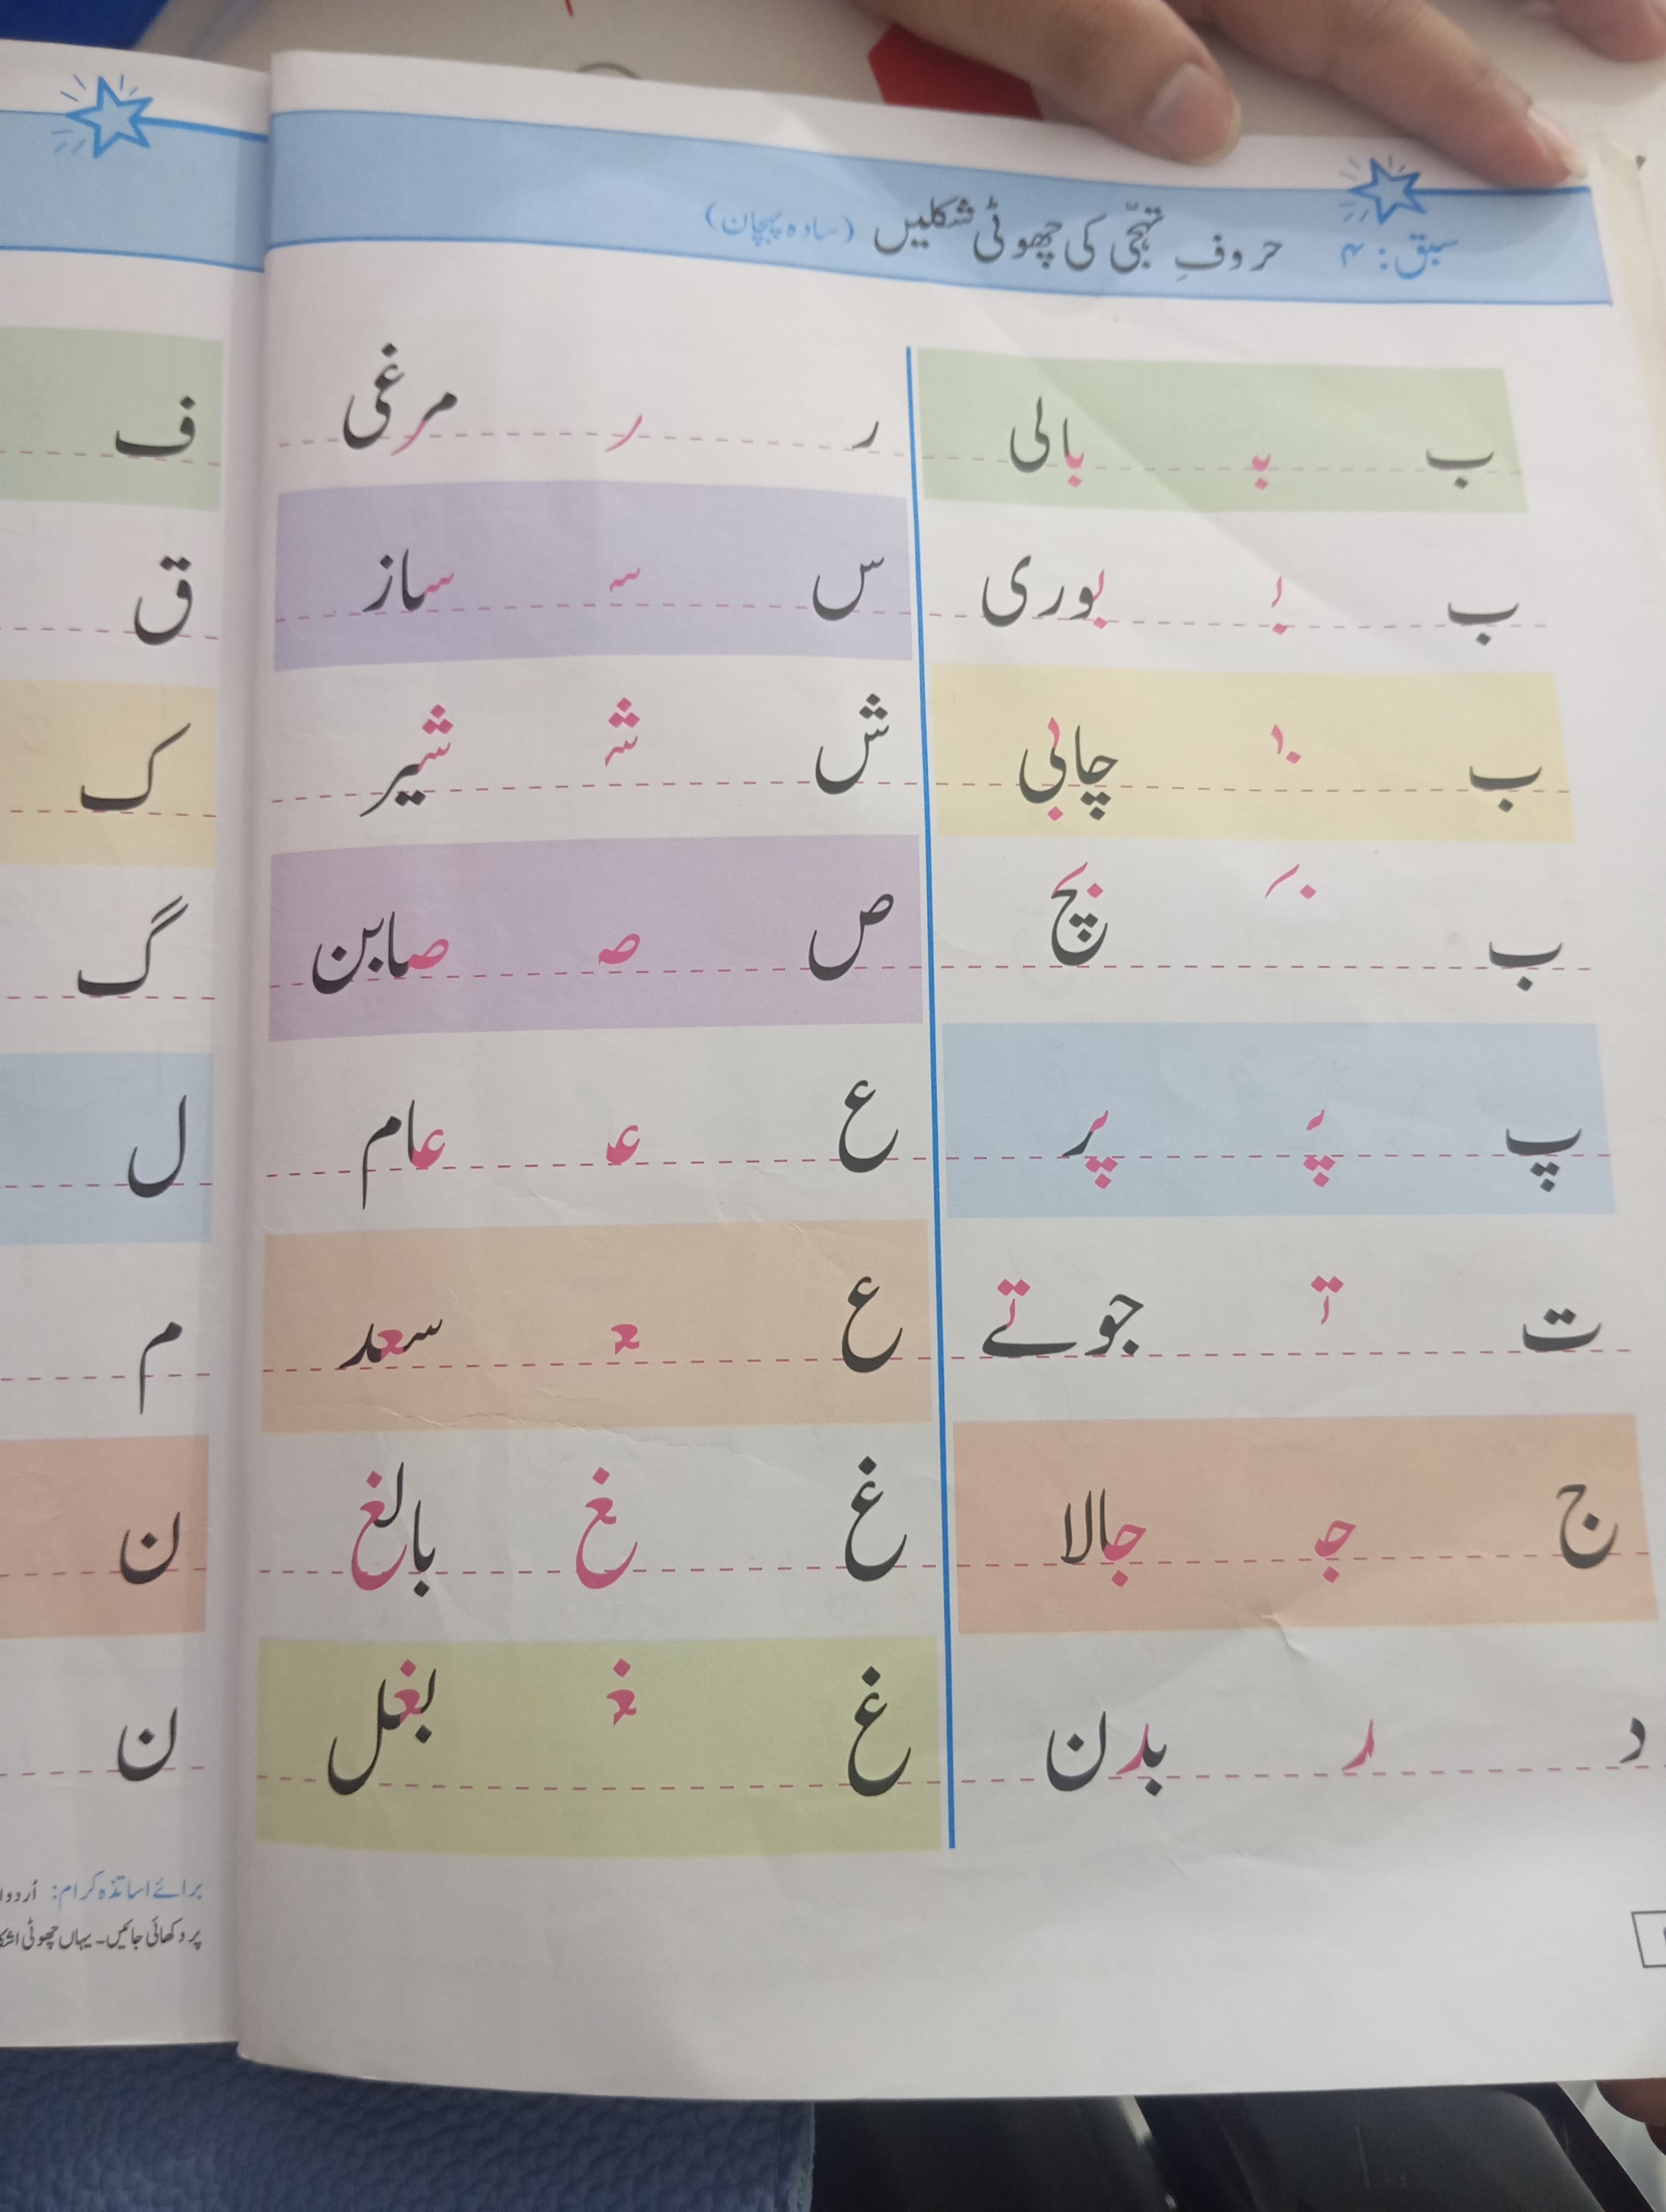 سبق: ۴ حروفِ تہجّی کی چھوٹی شکلیں (سادہ پہچان)
ب بـ بالی
ب بـ بوری
ب ـبـ چابی
ب بـ بچ
پ پـ پر
ت تـ جوتے
ج جـ جالا
د ـد بدن
ر ـر مرغی
س سـ ساز
ش شـ شیر
ص صـ صابن
ع عـ عام
ع ـعـ سعد
غ ـغ بالغ
غ ـغـ بغل
ف
ق
ک
گ
ل
م
ن
ن
برائے اساتذہ کرام: اُردو
پر دکھائی جائیں۔ یہاں چھوٹی